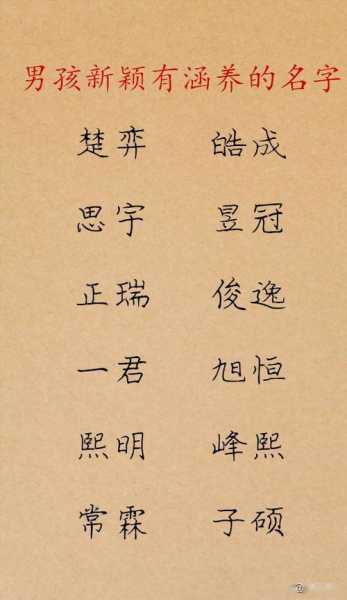 男孩新颖有涵养的名字
楚弈 皓成
思宇 昱冠
正瑞 俊逸
一君 旭恒
熙明 峰熙
常霖 子硕